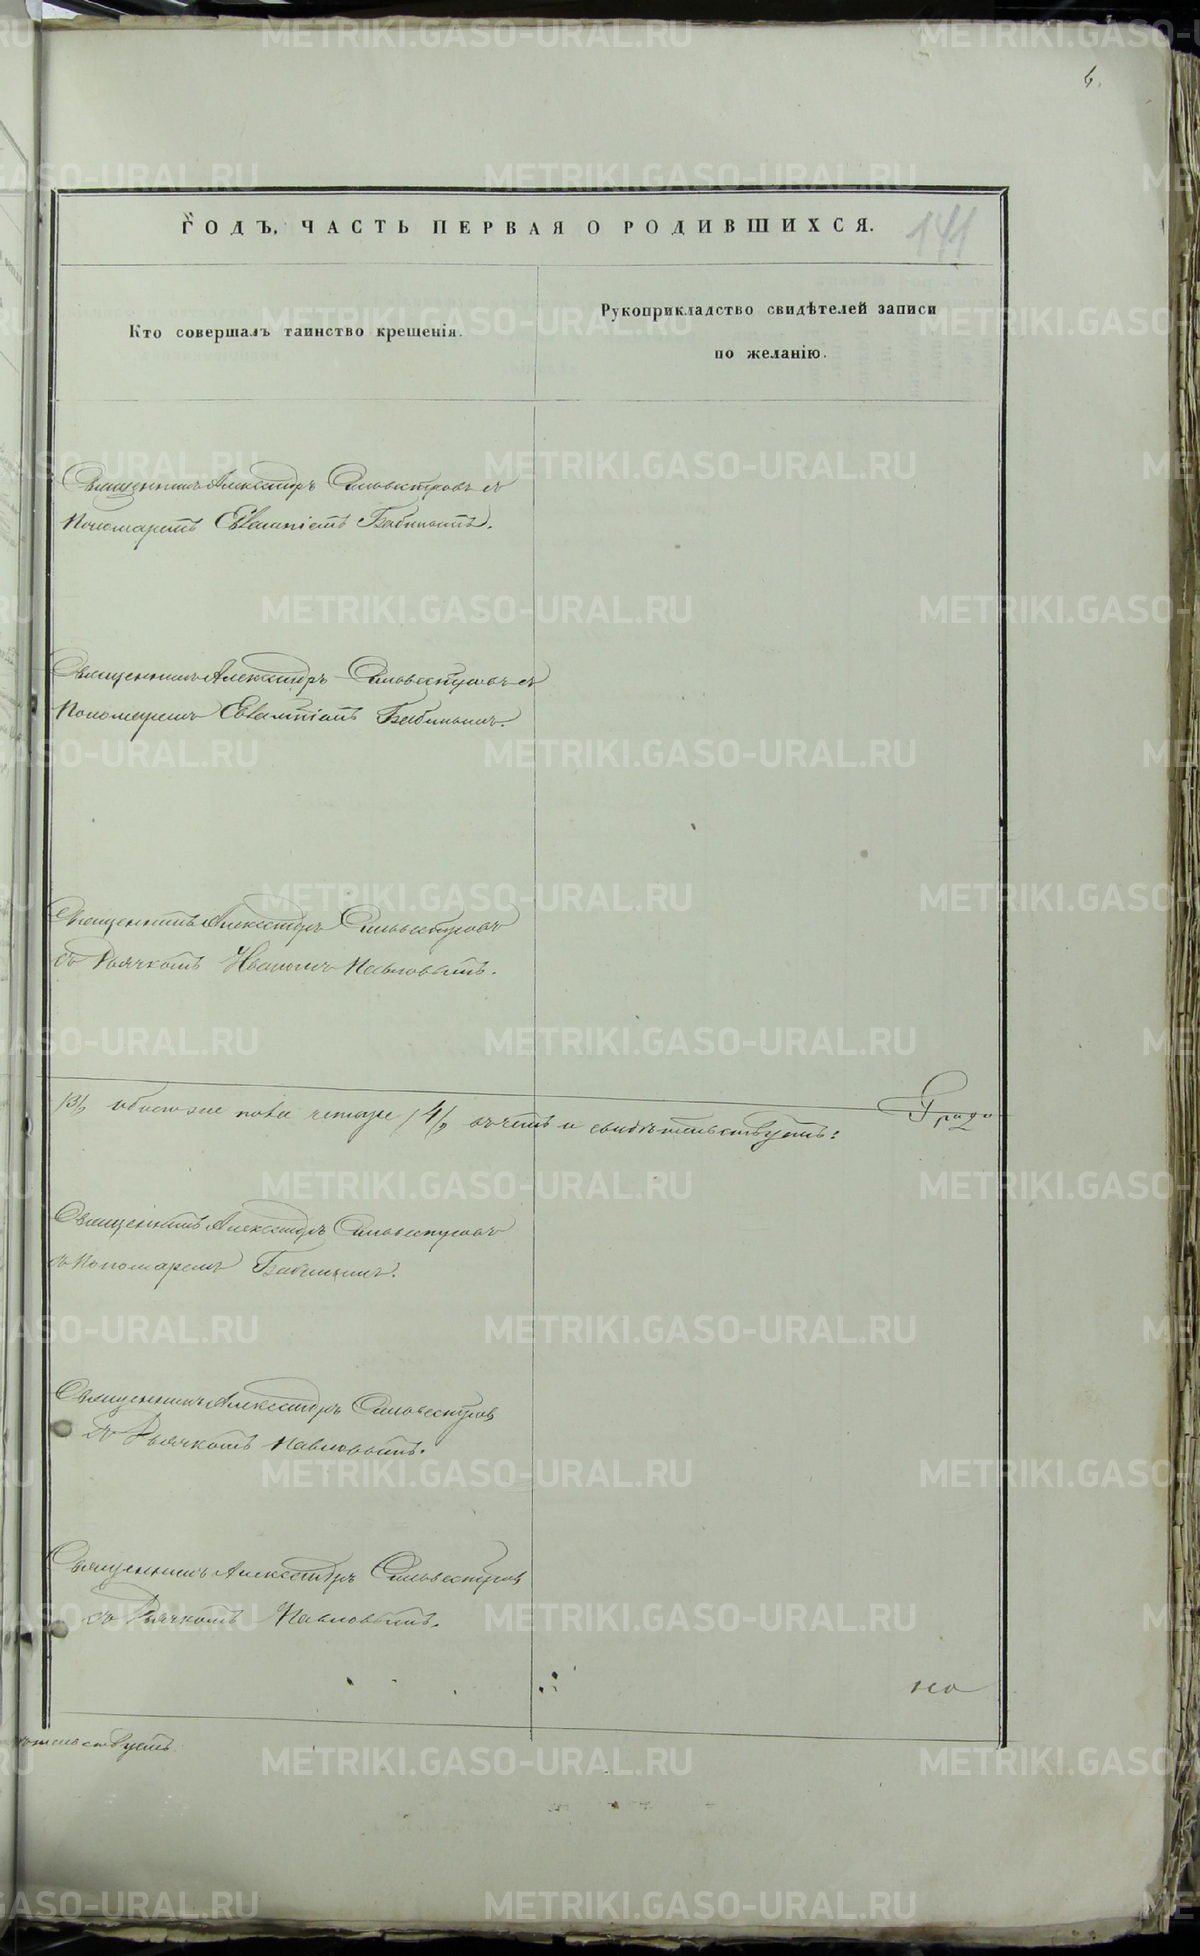 6.
ГОДЪ, ЧАСТЬ ПЕРВАЯ О РОДИВШИХСЯ.
141
Кто совершалъ таинство крещенія.
Рукоприкладство свидѣтелей записи
по желанію.
Священникъ Александръ Сильвестровъ съ
Пономаремъ Евлампіемъ Бабинымъ.
Священникъ Александръ Сильвестровъ съ
Пономаремъ Евлампіемъ Бабинымъ.
Священникъ Александръ Сильвестровъ
съ Дьячкомъ Иваномъ Павловымъ.
/3/ обоего пола четыре /4/, въ чемъ и свидѣтельствуемъ: Градо
Священникъ Александръ Сильвестровъ
съ Пономаремъ Бабинымъ.
Священникъ Александръ Сильвестровъ
съ Дьячкомъ Павловымъ.
Священникъ Александръ Сильвестровъ
съ Дьячкомъ Павловымъ.
METRIKI.GASO-URAL.RU